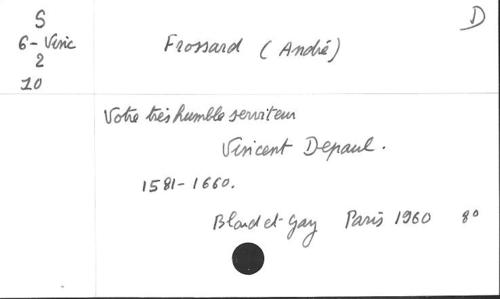 S
6-Vinc
2
10
D
Frossard (André)
Votre très humble serviteur
Vincent Depaul.
1581-1660.
Bloud et Gay Paris 1960 8°